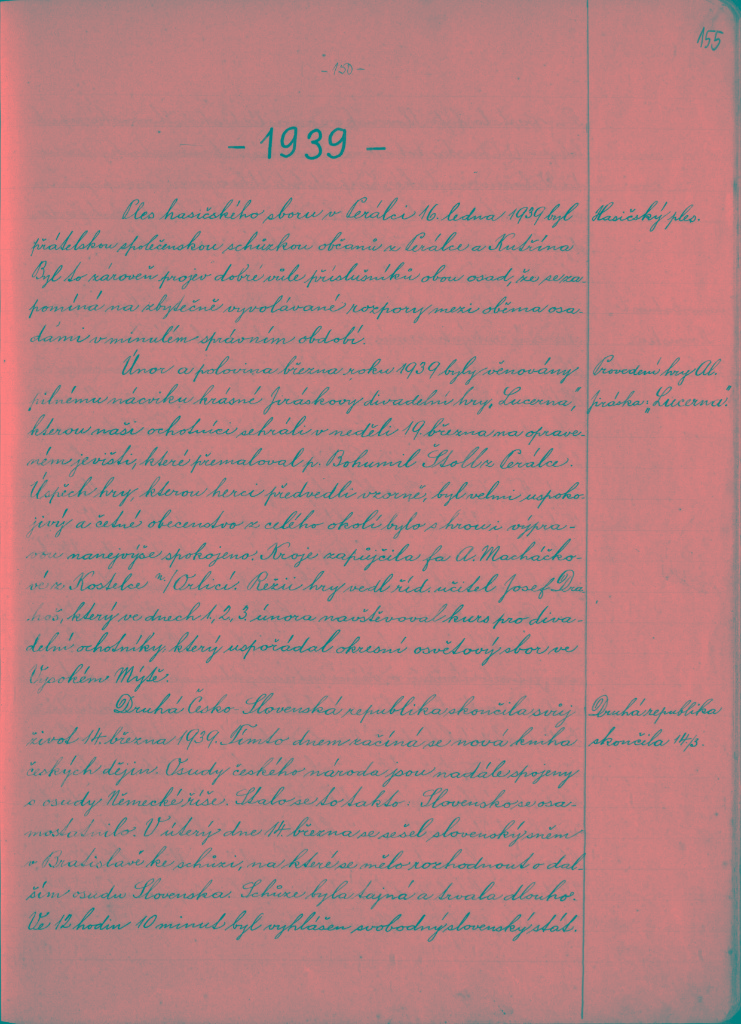 155
- 150 -
- 1939 -
Ples hasičského sboru v Perálci 16. ledna 1939 byl
Hasičský ples.
přátelskou společenskou schůzkou občanů z Perálce a Kutřína
Byl to zároveň projev dobré vůle příslušníků obou osad, že se za-
pomíná na zbytečně vyvolávané rozpory mezi oběma osa-
dámi v minulém správním období.
Únor a polovina března roku 1939 byly věnovány
Provedení hry Al.
pilnému nácviku krásné Jiráskovy divadelní hry „Lucerna",
Jiráska: „Lucerna".
kterou naši ochotníci sehráli v neděli 19. března na oprave-
ném jevišti, které přemaloval p. Bohumil Štoll z Perálce.
Úspěch hry, kterou herci předvedli vzorně, byl velmi uspoko-
jivý a četné obecenstvo z celého okolí bylo s hrou i výpra-
vou nanejvýše spokojeno. Kroje zapůjčila fa A. Macháčko-
vé z Kostelce n/Orlicí. Režii hry vedl říd. učitel Josef Dra
hoš, který ve dnech 1, 2, 3. února navštěvoval kurs pro diva-
delní ochotníky, který uspořádal okresní osvětový sbor ve
Vysokém Mýtě.
Druhá Česko-Slovenská republika skončila svůj
Druhá republika
život 14. března 1939. Tímto dnem začíná se nová kniha
skončila 14/3.
českých dějin. Osudy českého národa jsou nadále spojeny
s osudy Německé říše. Stalo se to takto: Slovensko se osa-
mostatnilo. V úterý dne 14. března se sešel slovenský sněm
v Bratislavě ke schůzi, na které se mělo rozhodnout o dal-
ším osudu Slovenska. Schůze byla tajná a trvala dlouho.
Ve 12 hodin 10 minut byl vyhlášen svobodný slovenský stát.